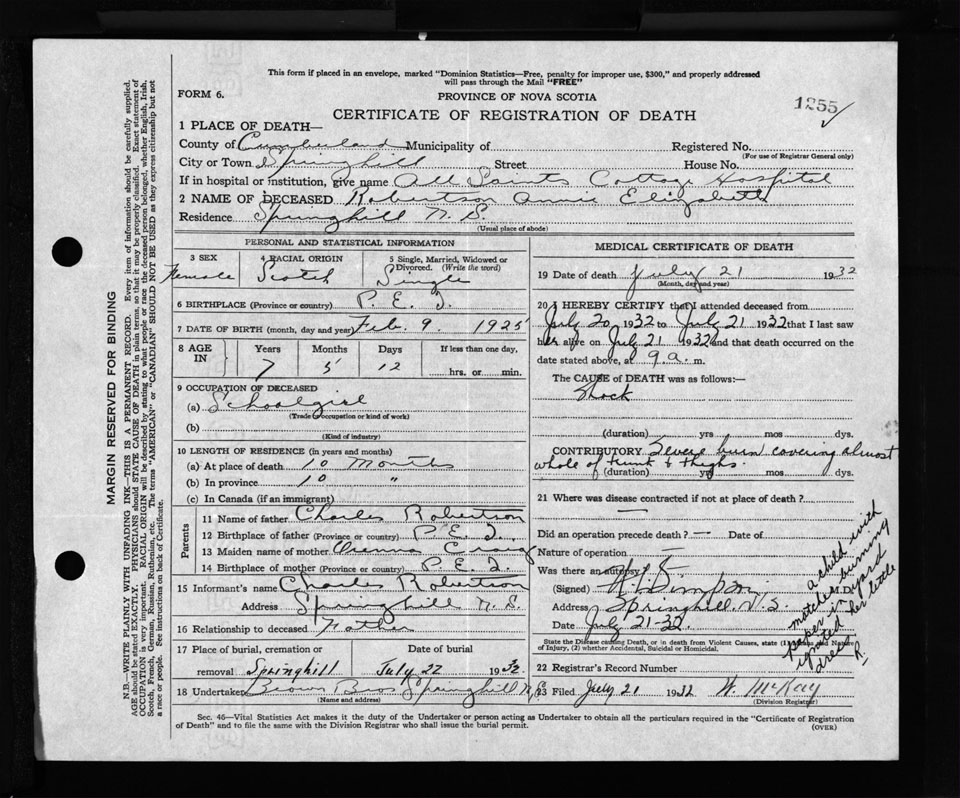 This form if placed in an envelope, marked "Dominion Statistics—Free, penalty for improper use, $300," and properly addressed
will pass through the Mail "FREE"
FORM 6.
PROVINCE OF NOVA SCOTIA
1255
CERTIFICATE OF REGISTRATION OF DEATH
1 PLACE OF DEATH—
County of Cumberland Municipality of Registered No.
(For use of Registrar General only)
City or Town Springhill Street House No.
If in hospital or institution, give name All Saints Cottage Hospital
2 NAME OF DECEASED Robertson Annie Elizabeth
Residence Springhill N. S.
(Usual place of abode)
PERSONAL AND STATISTICAL INFORMATION
3 SEX 4 RACIAL ORIGIN 5 Single, Married, Widowed or
Divorced. (Write the word)
Female Scotch Single
6 BIRTHPLACE (Province or country) P. E. I.
7 DATE OF BIRTH (month, day and year) Feb. 9. 1925
8 AGE IN Years Months Days If less than one day,
7 5 12 hrs. or min.
9 OCCUPATION OF DECEASED
(a) Schoolgirl
(Trade occupation or kind of work)
(b)
(Kind of industry)
10 LENGTH OF RESIDENCE (in years and months)
(a) At place of death 10 Months
(b) In province 10 "
(c) In Canada (if an immigrant)
Parents
11 Name of father Charles Robertson
12 Birthplace of father (Province or country) P. E. I.
13 Maiden name of mother Craig
14 Birthplace of mother (Province or country) P. E. I.
15 Informant's name Charles Robertson
Address Springhill N. S.
16 Relationship to deceased Father
17 Place of burial, cremation or Date of burial
removal Springhill July 22 1932
18 Undertaker Brown Bros. Springhill N.S.
(Name and address)
MEDICAL CERTIFICATE OF DEATH
19 Date of death July 21 1932
(Month, day and year)
20 I HEREBY CERTIFY that I attended deceased from
July 20 1932 to July 21 1932 that I last saw
her alive on July 21 1932 and that death occurred on the
date stated above, at 9 a. m.
The CAUSE of DEATH was as follows:—
Shock
(duration) yrs mos dys.
CONTRIBUTORY Severe burn covering almost
whole of trunk & thighs.
(duration) yrs mos dys.
21 Where was disease contracted if not at place of death?
—
Did an operation precede death? — Date of
Nature of operation —
Was there an autopsy
(Signed) Simpson M.D.
Address Springhill N.S.
Date July 21-32
State the Disease causing Death, or in death from Violent Causes, state (1) Means and Nature
of Injury, (2) whether Accidental, Suicidal or Homicidal.
a child with
matches burning
paper in yard
ignited her little
dress R.
22 Registrar's Record Number
23 Filed July 21 1932 W. McKay
(Division Registrar)
Sec. 46—Vital Statistics Act makes it the duty of the Undertaker or person acting as Undertaker to obtain all the particulars required in the "Certificate of Registration
of Death" and to file the same with the Division Registrar who shall issue the burial permit.
(OVER)
MARGIN RESERVED FOR BINDING
N.B.—WRITE PLAINLY WITH UNFADING INK—THIS IS A PERMANENT RECORD. Every item of information should be carefully supplied.
AGE should be stated EXACTLY. PHYSICIANS should STATE CAUSE OF DEATH in plain terms, so that it may be properly classified. Exact statement of
OCCUPATION is very important. RACIAL ORIGIN will be described by stating to what people or race the deceased person belonged, whether English, Irish,
Scotch, French, German, Russian, Ruthenian, etc. The terms "AMERICAN" or "CANADIAN" SHOULD NOT BE USED as they express citizenship but not
a race or people. See instructions on back of Certificate.